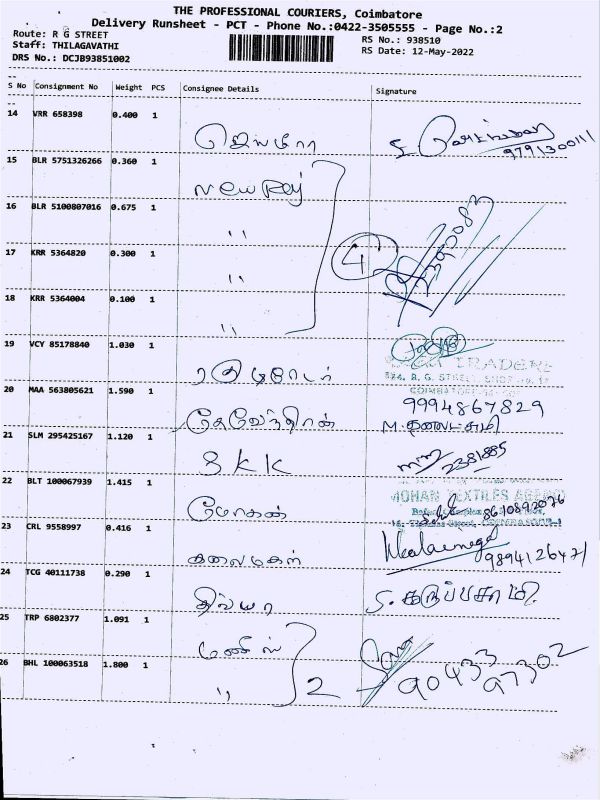 THE PROFESSIONAL COURIERS, Coimbatore
Delivery Runsheet - PCT - Phone No.:0422-3505555 - Page No.:2
Route: R G STREET
RS No.: 938510
Staff: THILAGAVATHI
RS Date: 12-May-2022
DRS No.: DCJB93851002
S No Consignment No Weight PCS Consignee Details Signature
14 VRR 658398 0.400 1
9791300111
15 BLR 5751326266 0.360 1 New Raj
16 BLR 5100807016 0.675 1 "
4
17 KRR 5364820 0.300 1 "
18 KRR 5364004 0.100 1 "
19 VCY 85178840 1.030 1
TRADERS
20 MAA 563805621 1.590 1 தேவேந்திரன் 9994867829
M.
21 SLM 295425167 1.120 1 SKK 2381885
22 BLT 100067939 1.415 1 மோகன் MOHAN TEXTILES AGENCY
8610892076
23 CRL 9558997 0.416 1 கலைமகள் Kalaimagal
9894126471
24 TCG 40111738 0.290 1 திவ்யா S. கருப்பசாமி.
25 TRP 6802377 1.091 1
26 BHL 100063518 1.800 1 " 2 90433 97302